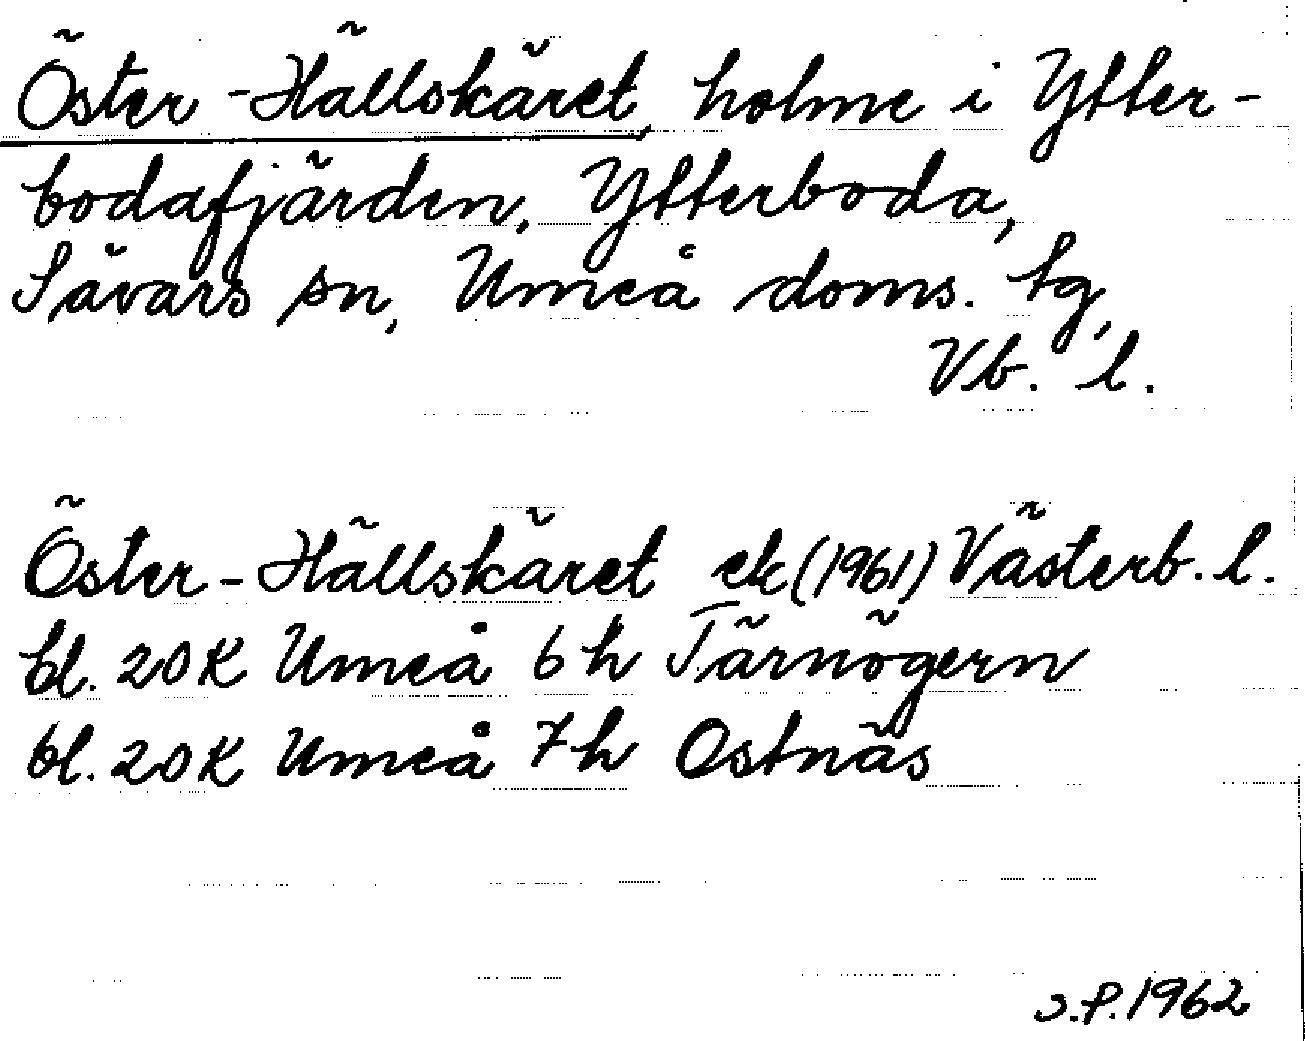 Öster-Hällskäret, holme i Ytter-
bodafjärden, Ytterboda,
Sävars sn, Umeå doms. tg,
Vb. l.
Öster-Hällskäret ek (1961) Västerb. l.
bl. 20K Umeå 6h Tärnögern
bl. 20K Umeå 7h Ostnäs
S.P. 1962